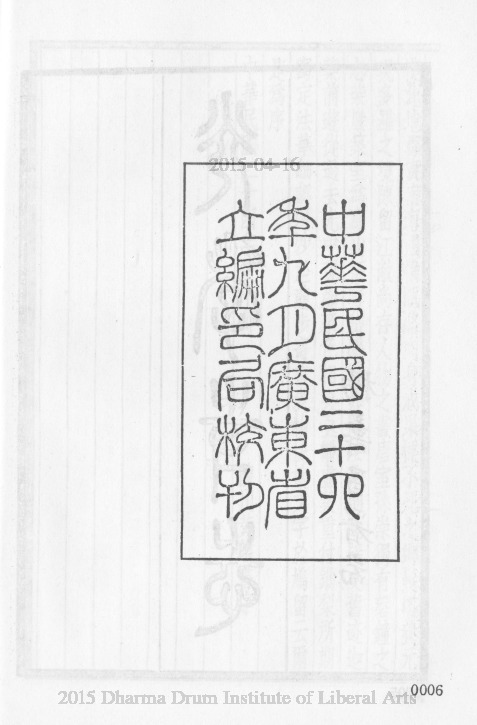 2015-04-16
中華民國二十四
年九月廣東省
立編印局校刊
0006
2015 Dharma Drum Institute of Liberal Arts